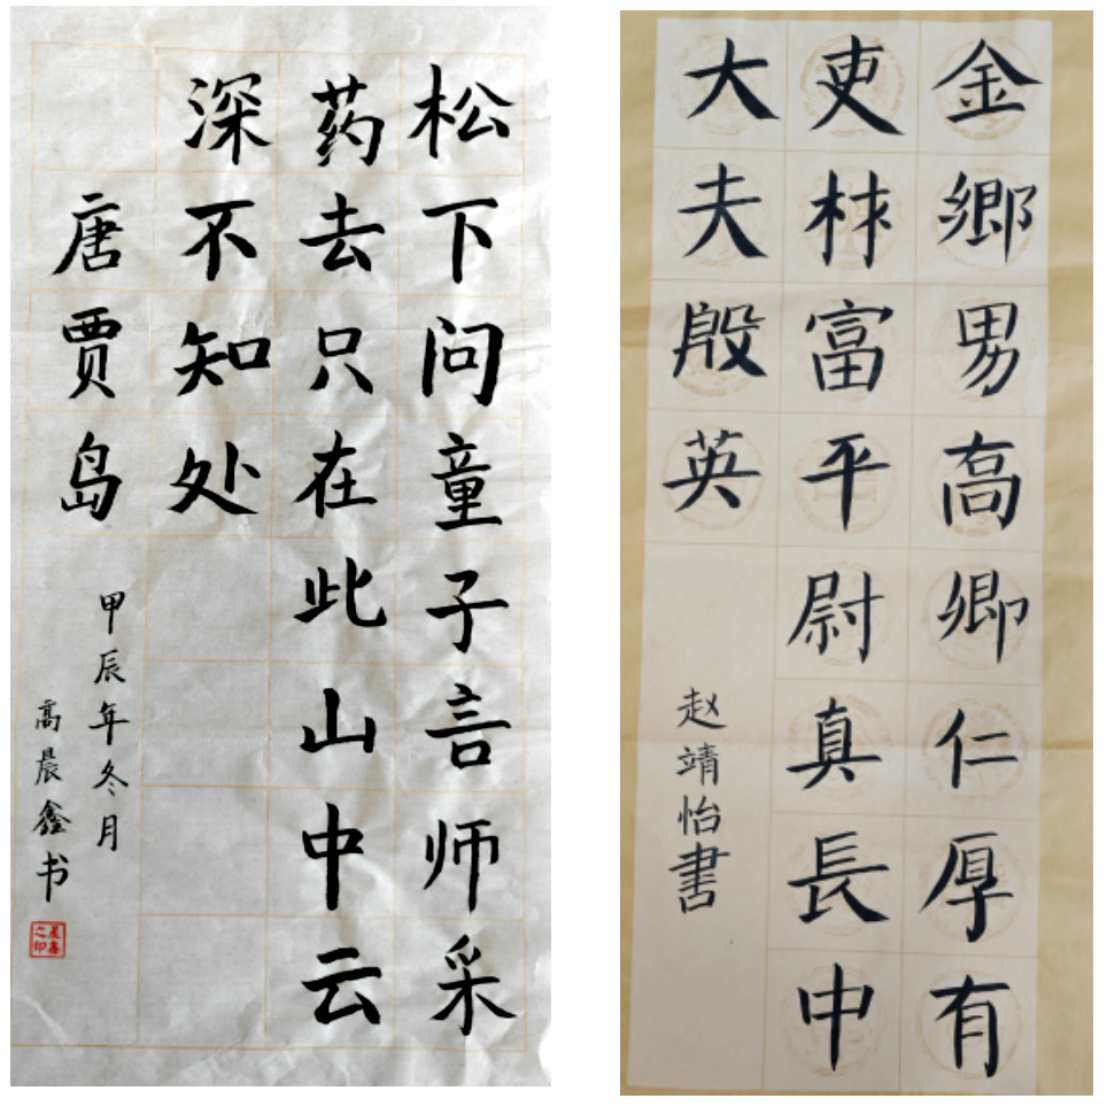 松下问童子言师采
药去只在此山中云
深不知处
唐贾岛
甲辰年冬月
高晨鑫书
晨鑫之印
金鄉男高卿仁厚有
吏材富平尉真長中
大夫殷英
赵靖怡書